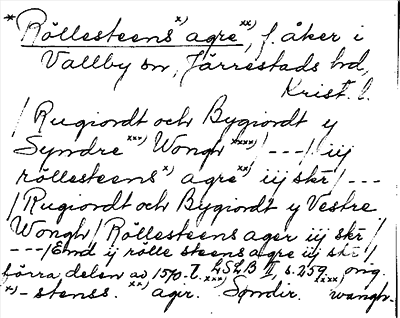 * Röllesteens x) agre xx), f. åker i
Vallby sn, Järrestads hd,
Krist. l.
/ Rugiordt och Bygiordt y
Syndre xxx) Wongh xxxx) / --- / iij
röllesteens x) agre xx) iij skr / ---
/ Rugiordt och Bygiordt y Vestre
Wongh / Röllesteens ager iij skr /
--- / End ij rölle steens agre iij skr /
förra delen av 1570-t. LSLB II, s. 259. orig.
x) -stenss. xx) agir. xxx) Søndir. xxxx) wangh-